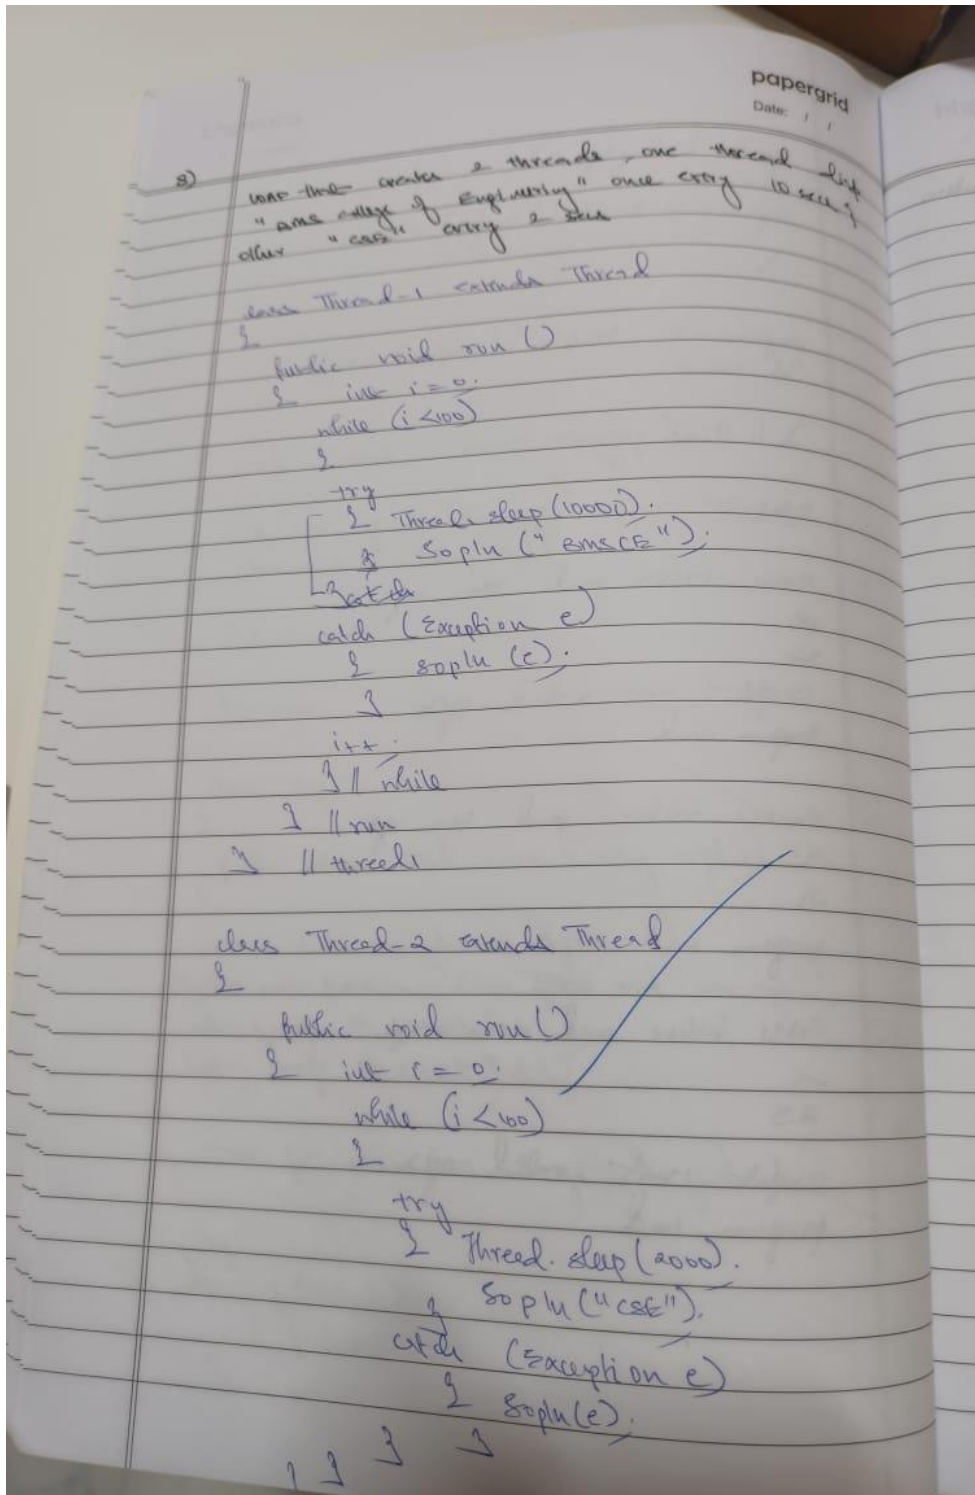 papergrid
Date: / /
8) WAP that creates 2 threads, one thread disp
"BMS college of Engineering" once every 10 secs &
other "CSE" every 2 secs
class Thread-1 extends Thread
{
public void run ()
{ int i = 0;
while (i <100)
{
try
{ Thread. sleep (10000);
Sopln (" BMSCE ");
}
catch (Exception e)
{ sopln (e);
}
i++ ;
} // while
} // run
} // thread1
class Thread-2 extends Thread
{
public void run ()
{ int i = 0;
while (i <100)
{
try
{ Thread. sleep (2000);
Sopln ("CSE");
}
catch (Exception e)
{ Sopln (e);
} }
} }